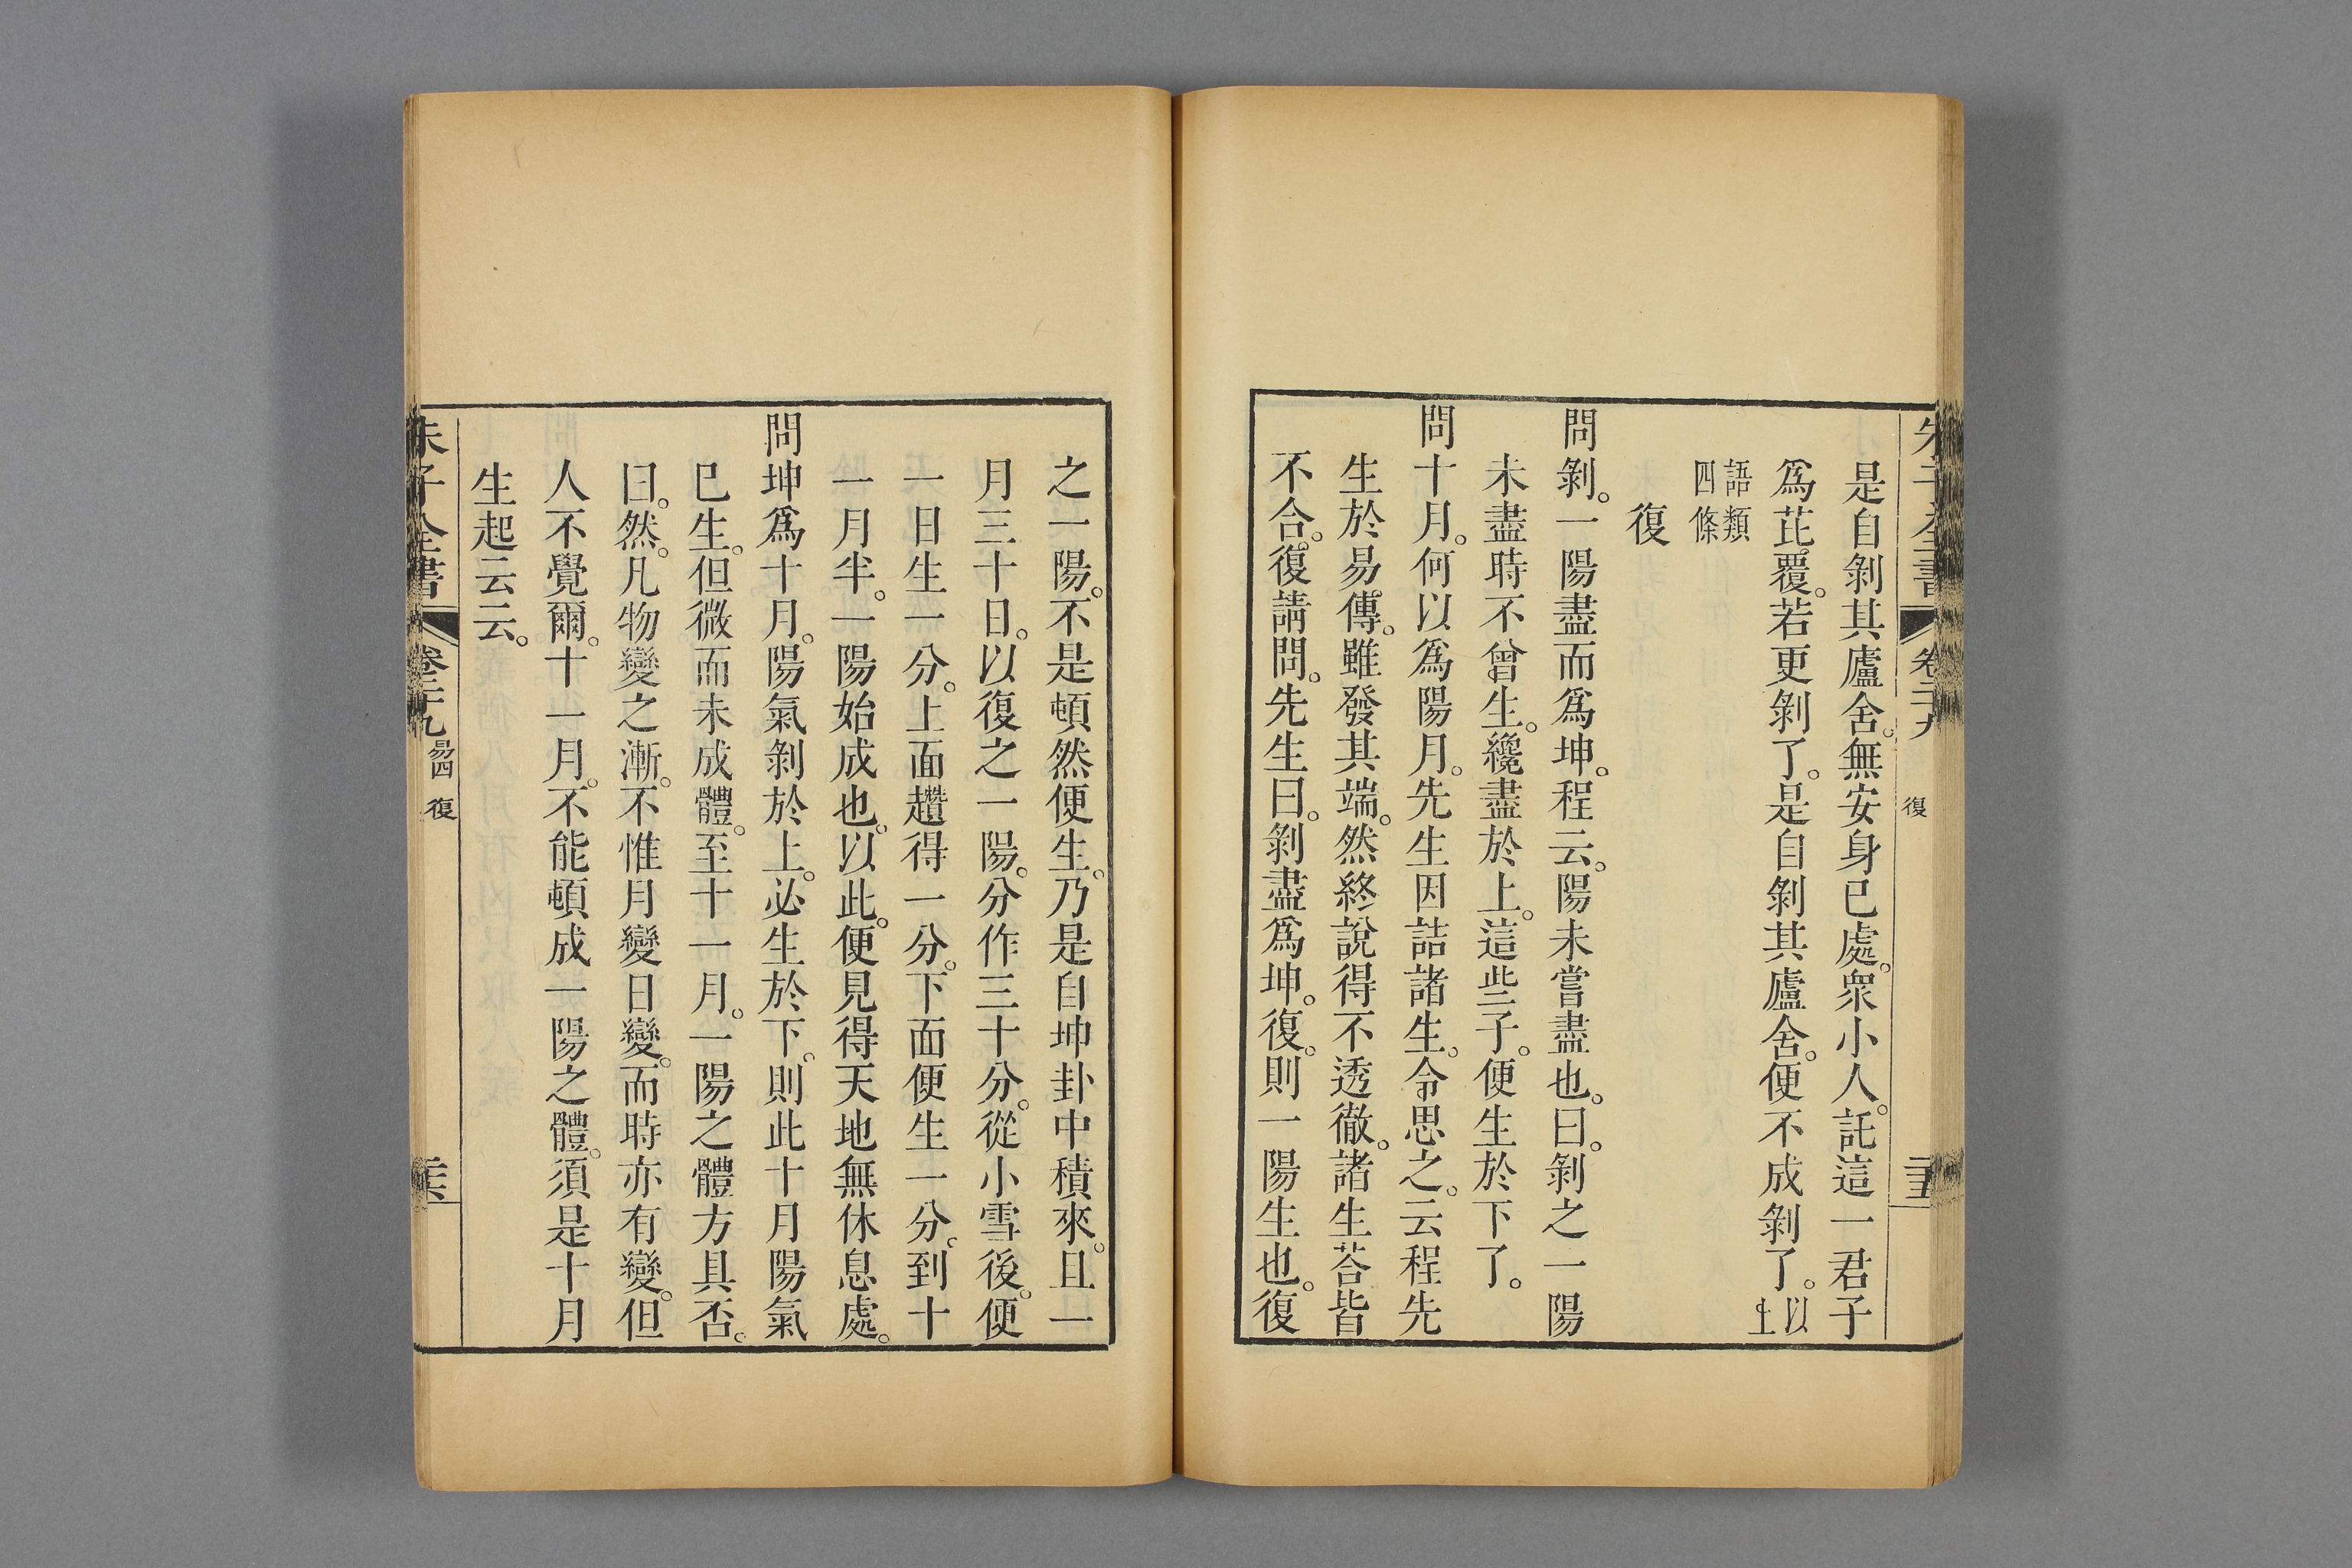 朱子全書 卷二十九 復
是自剝其廬舍。無安身己處。衆小人。託這一君子
爲芘覆。若更剝了。是自剝其廬舍。便不成剝了。以上
語類
四條
復
問剝。一陽盡而爲坤。程云。陽未嘗盡也。曰。剝之一陽
未盡時不曾生。纔盡於上。這些子。便生於下了。
問十月。何以爲陽月。先生因詰諸生。令思之。云程先
生於易傳。雖發其端。然終說得不透徹。諸生荅皆
不合。復請問。先生曰。剝盡爲坤。復。則一陽生也。復
之一陽。不是頓然便生。乃是自坤卦中積來。且一
月三十日。以復之一陽。分作三十分。從小雪後。便
一日生一分。上面趲得一分。下面便生一分。到十
一月半。一陽始成也。以此。便見得天地無休息處。
問坤爲十月。陽氣剝於上。必生於下。則此十月陽氣
已生。但微而未成體。至十一月。一陽之體方具否。
曰。然。凡物變之漸。不惟月變日變。而時亦有變。但
人不覺爾。十一月。不能頓成一陽之體。須是十月
生起云云。
朱子全書 卷二十九 易四 復